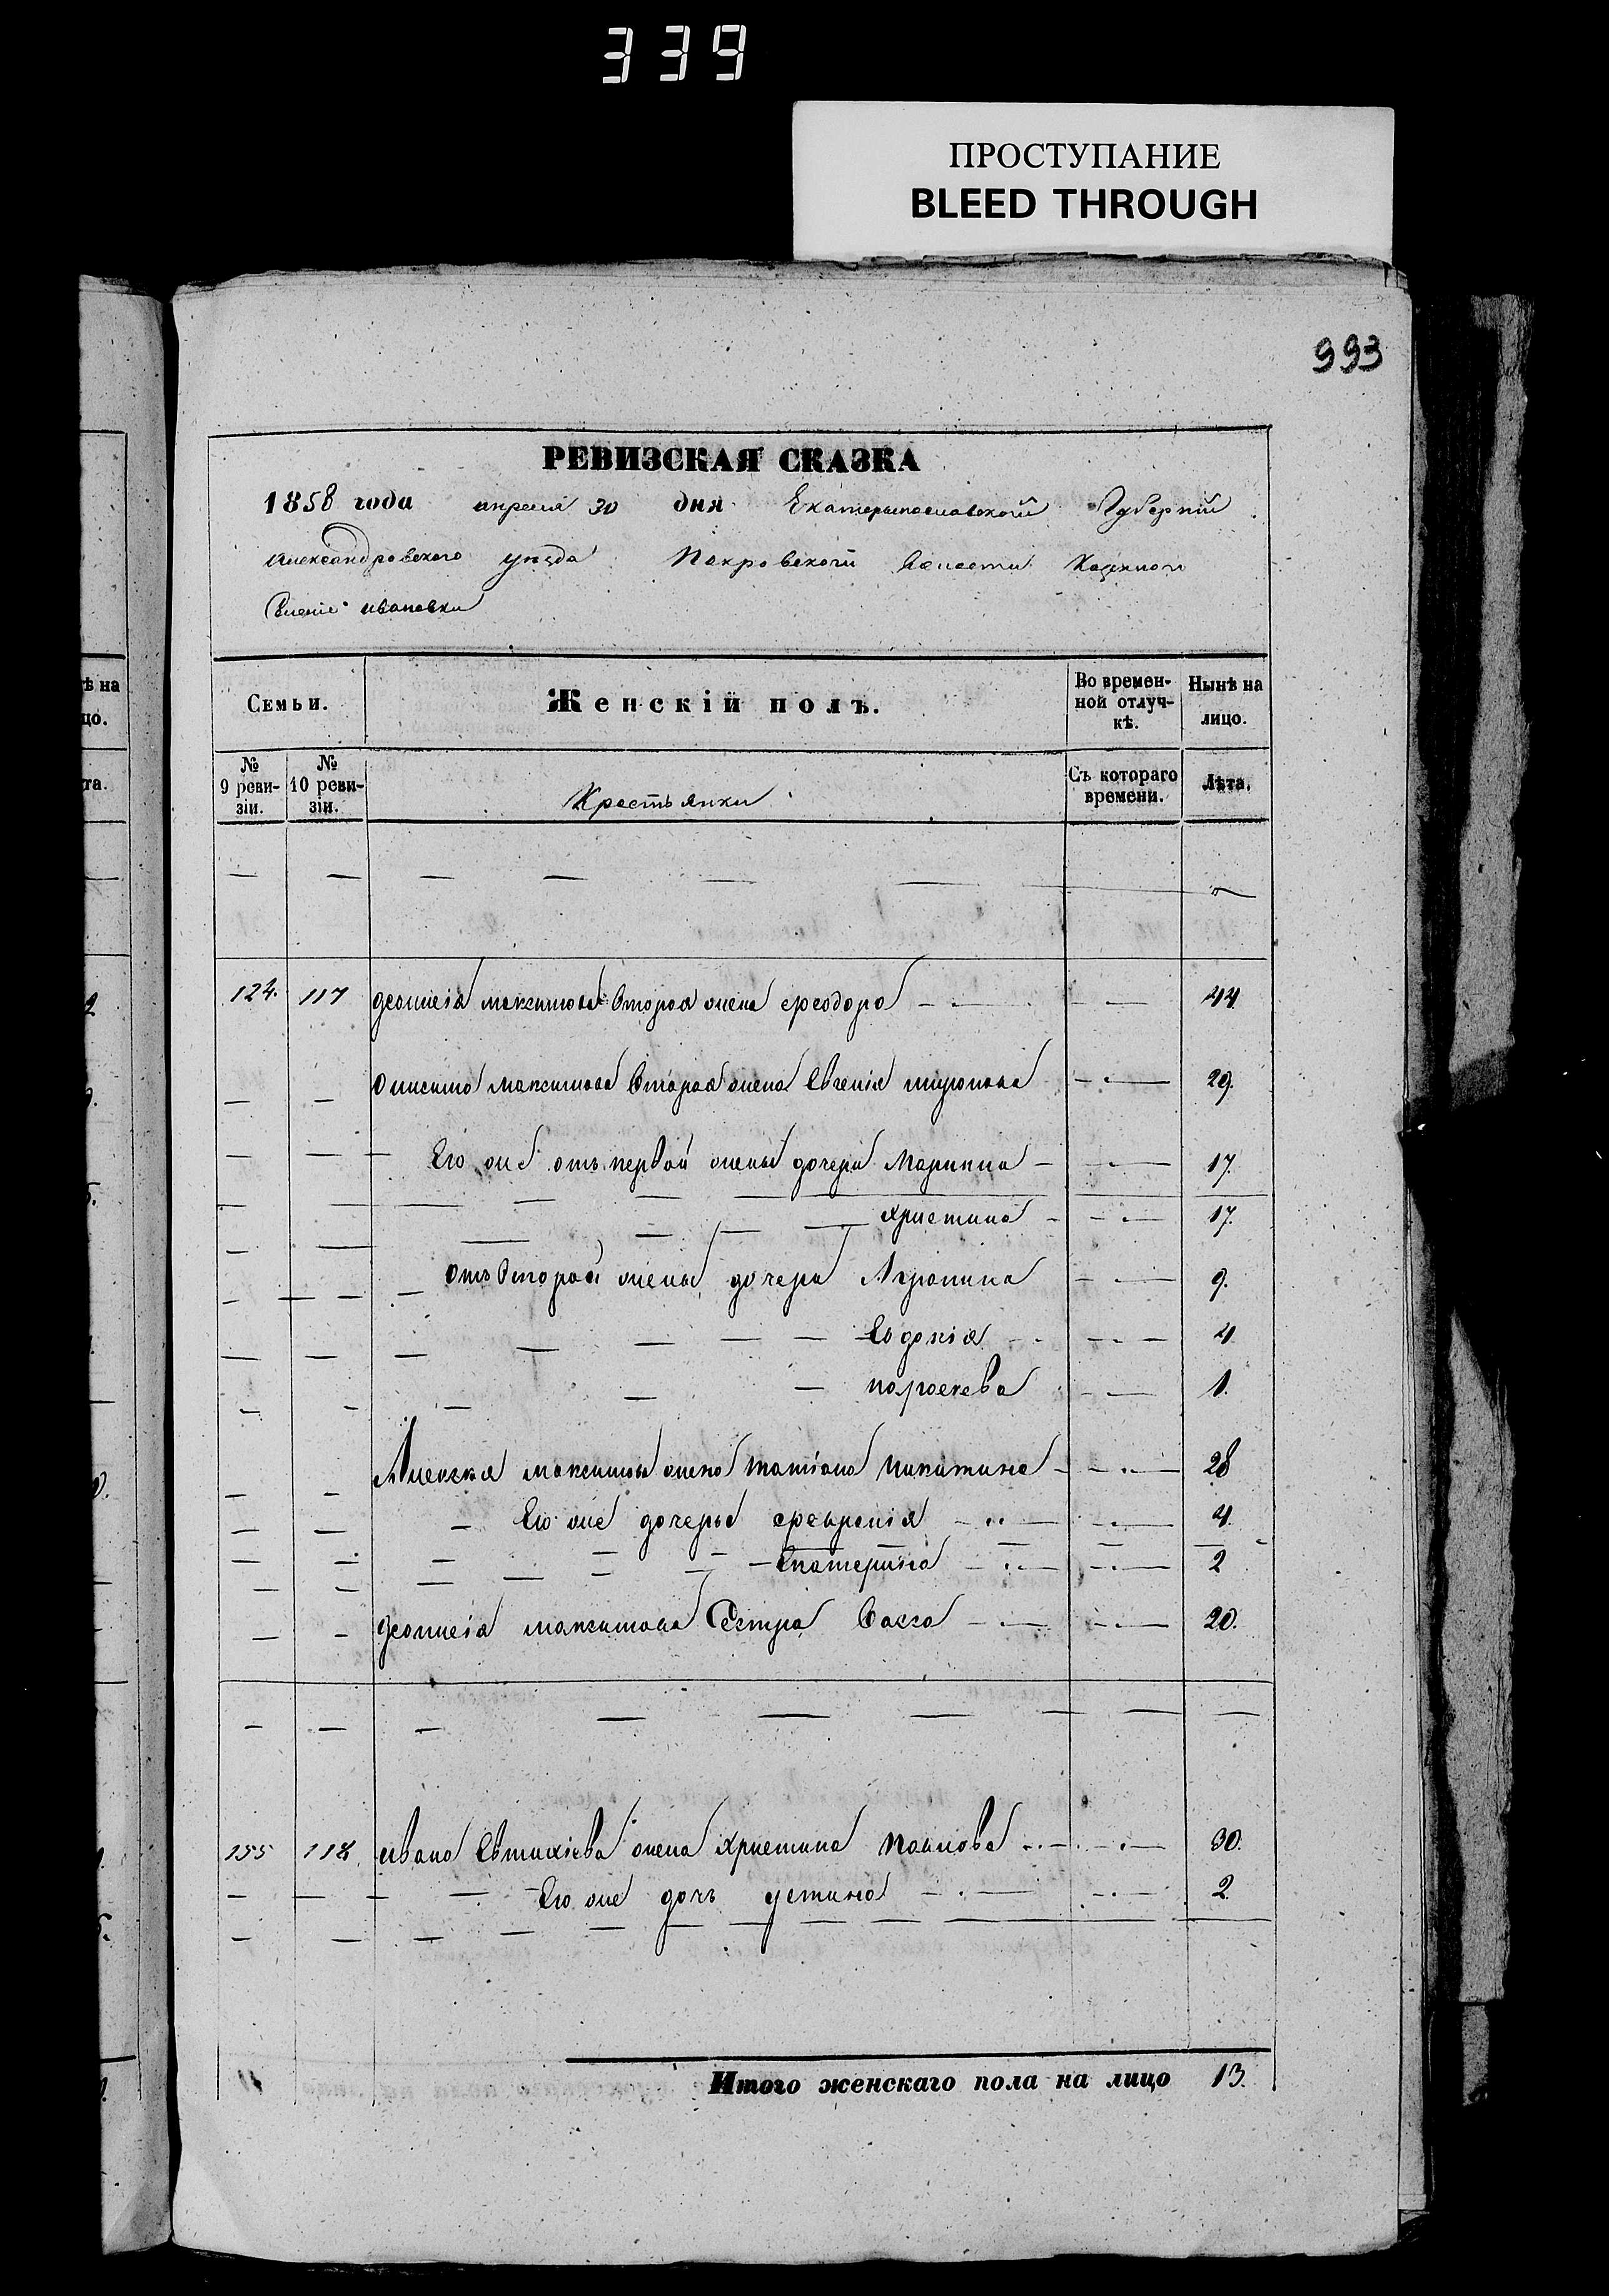 339
ПРОСТУПАНИЕ
BLEED THROUGH
993
РЕВИЗСКАЯ СКАЗКА
1858 года апреля 30 дня Екатеринославской Губерніи
Александровского уезда Покровской Волости Казенной
Селенія Ивановки
ѣ на
цо.
та.
Семьи.
Женскій полъ.
Во времен-
ной отлуч-
кѣ.
Нынѣ на
лицо.
№
9 реви-
зіи.
№
10 реви-
зіи.
Крестьянки
Съ котораго
времени.
Лѣта.
124. 117 максимова вторая жена феодора 44
Онисима максимова вторая жена Евгенія 29.
Его же отъ первой жены дочери Марина 17.
христина 17.
отъ второй жены дочери Агрипина 9.
Евдокія 4
параскева 1.
Алексея максимова жена татіана никитина 28
Его же дочерьи февронія 4.
Екатерина 2
максимова Сестра Васса 20.
155 118. ивана Евтихіева жена христина Павлова 30.
Его же дочь устина 2.
Итого женскаго пола на лицо 13.